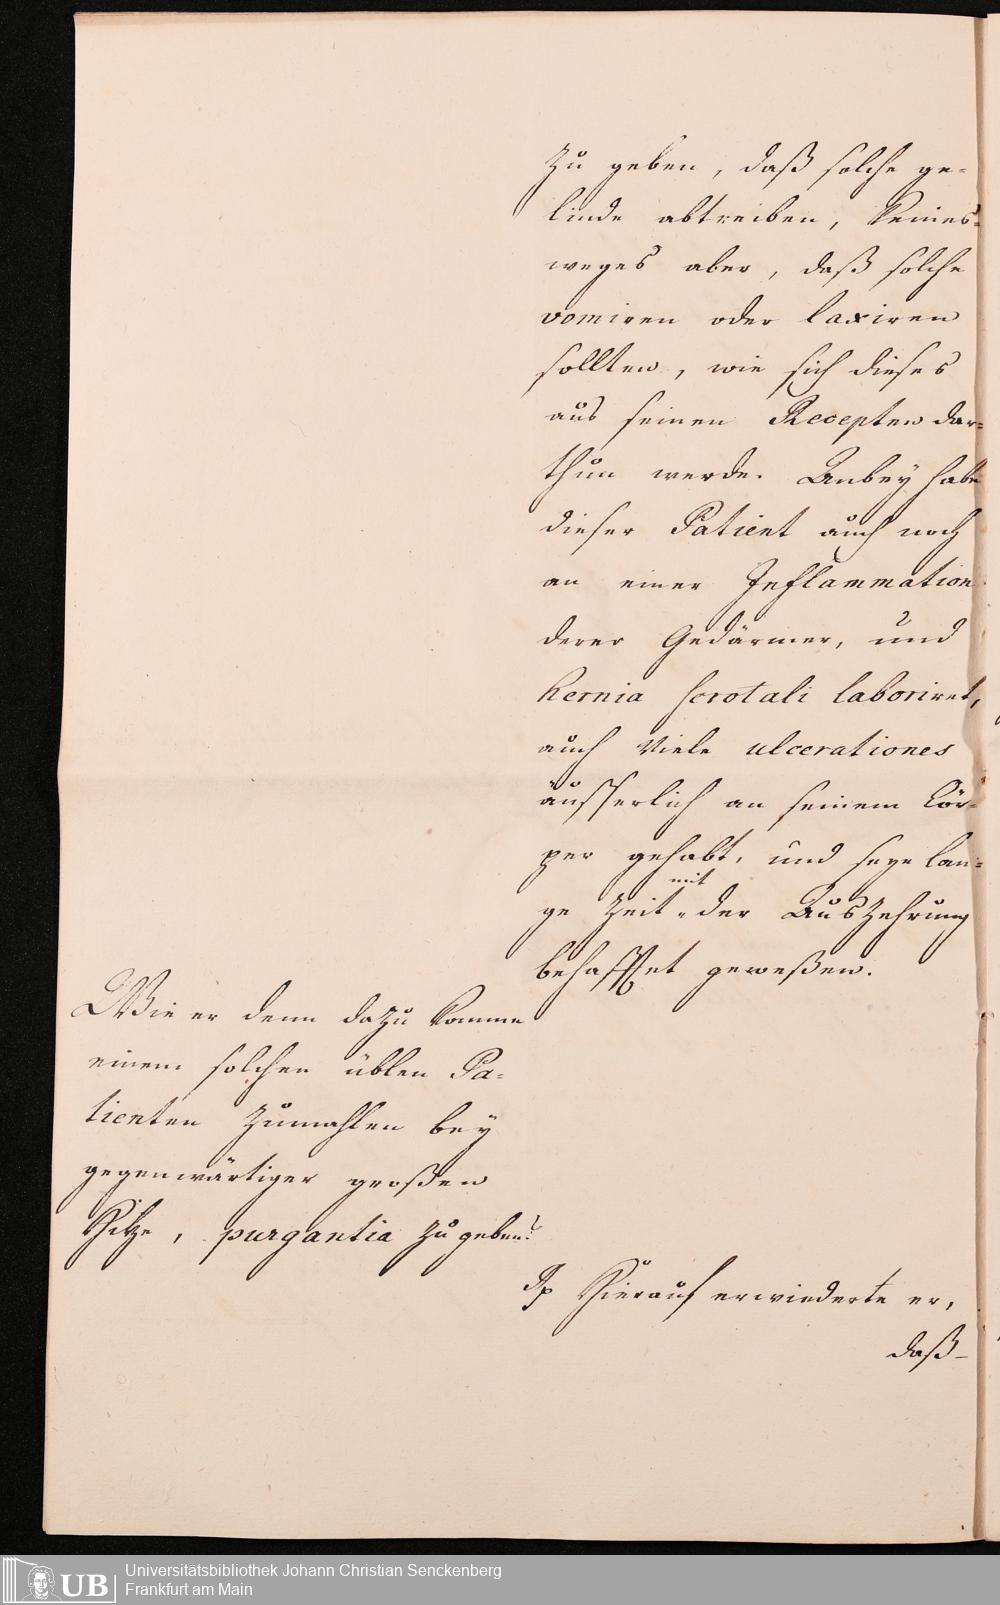 zu geben, daß solche ge-
linde abtreiben, keines-
weges aber, daß solche
vomiren oder laxiren
sollten, wie sich dieses
aus seinen Recepten dar-
thun werde. Anbey habe
dieser Patient auch noch
an einer Inflammation
derer Gedärmer, und
hernia scrotali laboriret,
auch viele ulcerationes
äusserlich an seinem Cör-
per gehabt, und seye lan-
mit
ge Zeit der AusZehrung
behafftet geweßen.
Wie er denn dazu komme
einem solchen üblen Pa-
tienten zumahlen bey
gegenwärtiger großen
Hitze, purgantia zu geben?
Hierauf erwiederte er,
daß
Universitätsbibliothek Johann Christian Senckenberg
Frankfurt am Main
UB